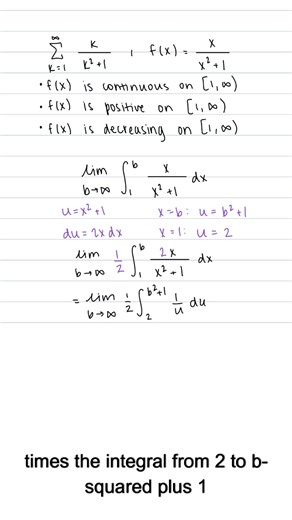 ∞
∑ k/(k²+1) , f(x) = x/(x²+1)
k=1
• f(x) is continuous on [1,∞)
• f(x) is positive on [1,∞)
• f(x) is decreasing on [1,∞)
lim b→∞ ∫₁ᵇ x/(x²+1) dx
u=x²+1 x=b: u=b²+1
du=2xdx x=1: u=2
lim b→∞ 1/2 ∫₁ᵇ 2x/(x²+1) dx
= lim b→∞ 1/2 ∫₂^(b²+1) 1/u du
times the integral from 2 to b-
squared plus 1